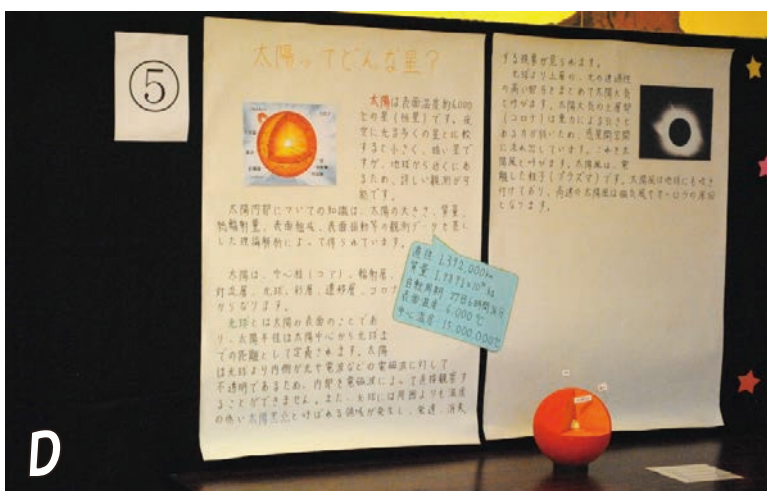 ⑤
太陽ってどんな星?
太陽は表面温度約6,000
℃の星(恒星)です。夜
空に光る多くの星と比較
すると小さく、暗い星で
すが、地球から近くにあ
るため、詳しい観測が可
能です。
太陽内部についての知識は、太陽の大きさ、質量、
総輻射量、表面組成、表面振動等の観測データを基に
した理論解析によって得られています。
太陽は、中心核(コア)、輻射層、
対流層、光球、彩層、遷移層、コロナ
からなります。
光球とは太陽の表面のことであ
り、太陽半径は太陽中心から光球ま
での距離として定義されます。太陽
は光球より内側が光や電波などの電磁波に対して
不透明であるため、内部を電磁波によって直接観察す
ることができません。また、光球には周囲よりも温度
の低い太陽黒点と呼ばれる領域が発生し、発達、消失
直径 1,392,000km
質量 1.9891×10³⁰kg
自転周期 27日6時間36分
表面温度 6,000℃
中心温度 15,000,000℃
する現象が見られます。
光球より上層の、光の透過性
の高い部分をまとめて太陽大気
と呼びます。太陽大気の上層部
(コロナ)は重力による引きと
める力が弱いため、惑星間空間
に流れ出しています。これを太
陽風と呼びます。太陽風は、電
離した粒子(プラズマ)です。太陽風は地球にも吹き
付けており、高速の太陽風は磁気嵐やオーロラの原因
となります。
D